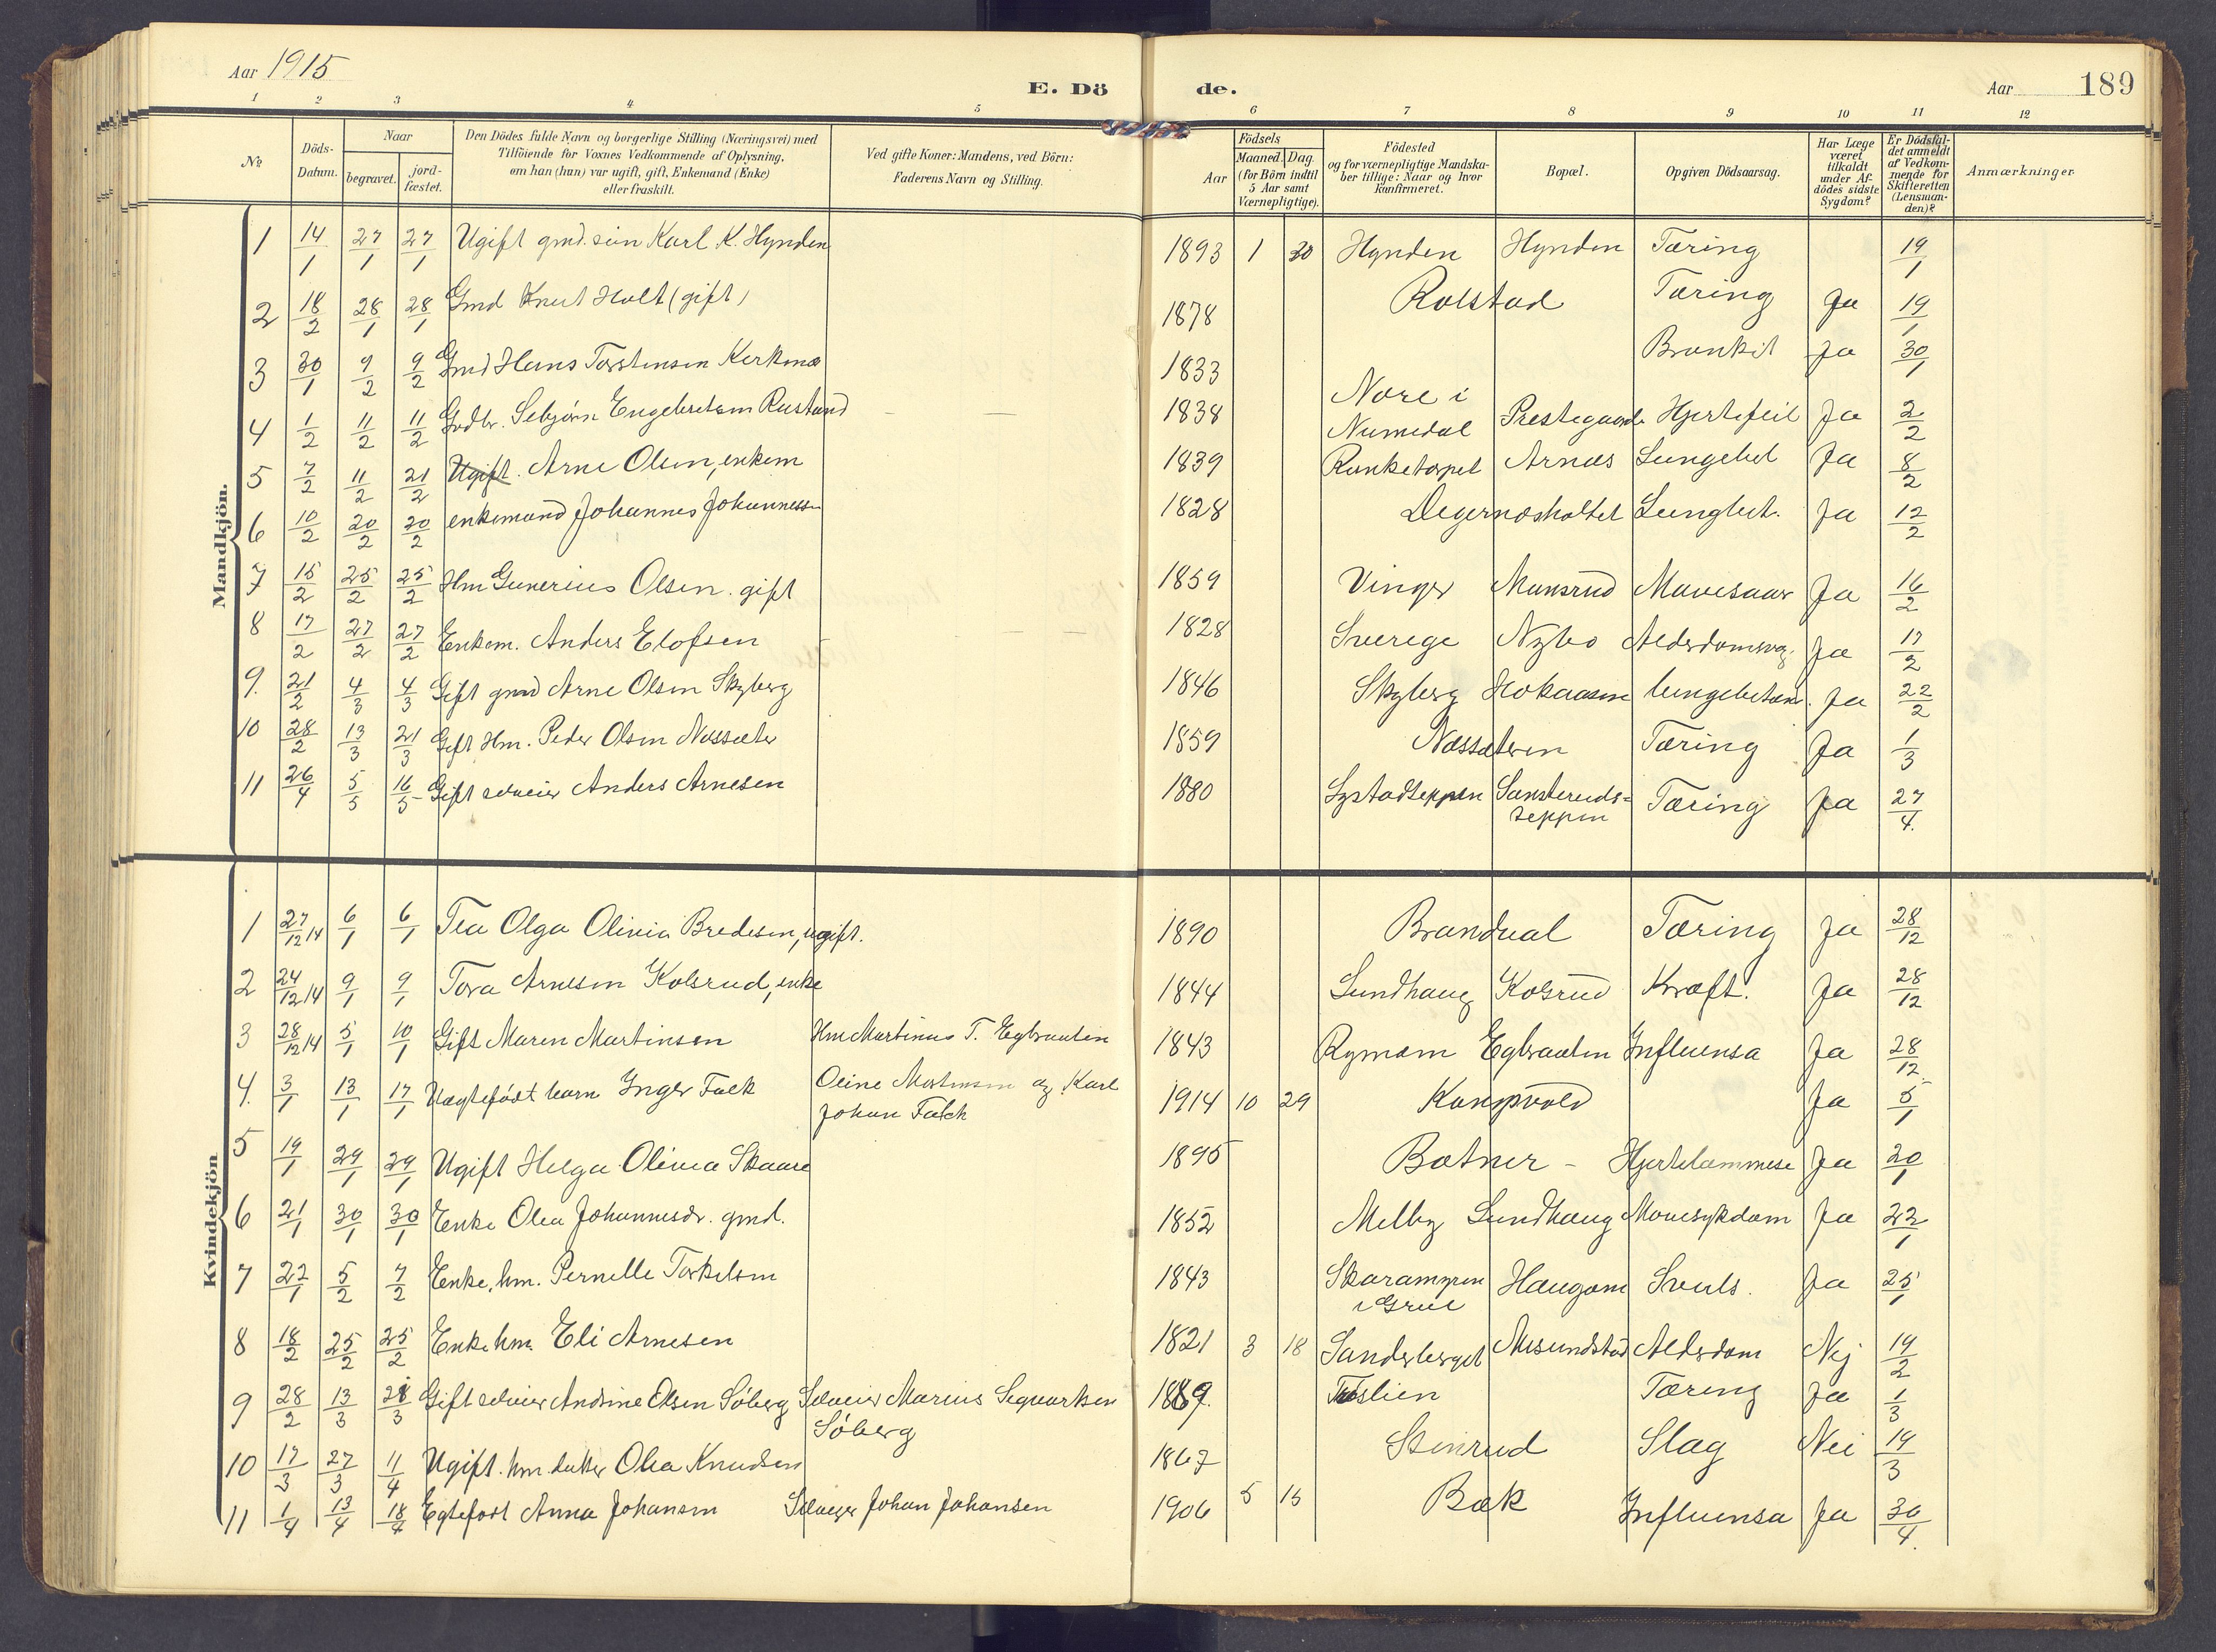 Aar 1915
E. Döde.
Aar 189
1 2 3 4 5 6 7 8 9 10 11 12
№
Döds-Datum.
Naar
begravet.
jord-fæstet.
Den Dödes fulde Navn og borgerlige Stilling (Næringsvei) med
Tilföiende for Voxnes Vedkommende af Oplysning,
om han (hun) var ugift, gift, Enkemand (Enke)
eller fraskilt.
Ved gifte Koner: Mandens, ved Börn:
Faderens Navn og Stilling.
Födsels
Aar
Maaned. Dag.
(for Börn indtil
5 Aar samt
Værnepligtige).
Födested
og for værnepligtige Mandska-
ber tillige: Naar og hvor
konfirmeret.
Bopæl.
Opgiven Dödsaarsag.
Har Læge
været
tilkaldt
under Af-
dödes sidste
Sygdom?
Er Dödsfal-
det anmeldt
af Vedkom-
mende for
Skifteretten
(Lensman-
den)?
Anmærkninger
Mandkjön.
1 14/1 27/1 27/1 Ugift gmd. sön Karl K. Hynden 1893 1 30 Hynden Hynden Tæring 19/1
2 18/2 28/1 28/1 Gmd Knut Holt (gift) 1878 Rolstad Tæring Ja 19/1
3 30/1 9/2 9/2 Gmd Hans Torstensen Kerkmo 1833 Bronkit Ja 30/1
4 1/2 11/2 11/2 Godbr. Sebjörn Engebretsen Rustand 1838 Nore i Numedal Prestegaarde Hjertefeil Ja 2/2
5 7/2 11/2 21/2 Ugift. Arne Olsen, enkem 1839 Runketorpet Arnæs Lungebet Ja 8/2
6 10/2 20/2 20/2 enkemand Johannes Johannessen 1828 Degernæsholtet Lungbet. Ja 12/2
7 15/2 25/2 25/2 Hm Gunerius Olsen. gift 1859 Vinger Munsrud Mavesaar Ja 16/2
8 17/2 27/2 27/2 Enkem. Anders Elofsen 1828 Sverige Nybo Alderdomsvag. Ja 17/2
9. 21/2 4/3 4/3 Gift gmd Arne Olsen Skyberg 1846 Skyberg Hokaasen lungebetæn. Ja 22/2
10 28/2 13/3 21/3 Gift Hm. Peder Olsen Næssæter 1859 Næssæteren Tæring Ja 1/3
11 26/4 5/5 16/5 Gift selveier Anders Arnesen 1880 Systadteppen Sansteruds=teppen Tæring Ja 27/4.
Kvindekjön
1 27/12 14 6/1 6/1 Tea Olga Olivia Bredesen, ugift. 1890 Brandval Tæring Ja 28/12
2 24/12 14 9/1 9/1 Tora Arnesen Kolsrud, enke 1844 Sundhaug Kolsrud Kræft. Ja 28/12
3 28/12 14 5/1 10/1 Gift Maren Martinsen Hm Martinus T. Egbraaten 1843 Rymoen Egbraaten Influensa Ja 28/12
4. 3/1 13/1 17/1 Uægtefödt barn Inger Falk Oline Mortensen og Karl Johan Falch 1914 10 29 Kongsvold Ja 5/1
5 19/1 29/1 29/1 Ugift Helga Olivia Skaare 1895 Botner - Hjertelammese Ja 20/1
6 21/1 30/1 30/1 Enke Olea Johannesdr. gmd. 1852 Melby Sundhaug Mavesykdom Ja 22/1
7 22/1 5/2 7/2 Enke, hm. Pernelle Torkelsen 1843 Skaramyren i Grue Haugom Svuls. Ja 25/1
8 18/2 25/2 25/2 Enke hm. Eli Arnesen 1821 3 18 Sanderberget Aasundstad Alderdom Nej 19/2
9 28/2 13/3 21/3 Gift selveier Andrine Olsen Söberg Selveier Marius Sequartsen Söberg 1889. Tæslien Tæring Ja 1/3
10 17/3 27/3 11/4 Ugift. hm. datter Olea Knudsen 1867 Stenrud Slag Nei 19/3
11 1/4 13/4 18/4 Egtefödt Anna Johansen Selveier Johan Johansen 1906 5 15 Bæk Influensa Ja 30/4.